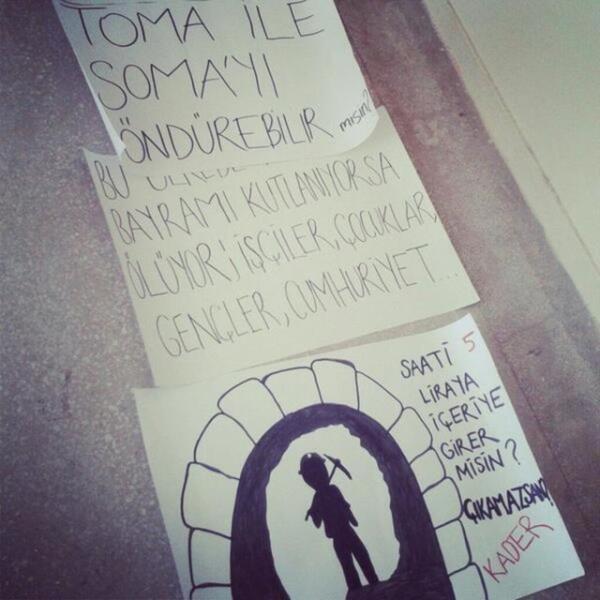 TOMA İLE
SOMA'YI
SÖNDÜREBİLİR misin?
BU ÜLKEDE
BAYRAMI KUTLANIYORSA
ÖLÜYOR; İŞÇİLER, ÇOCUKLAR,
GENÇLER, CUMHURİYET...
SAATİ 5
LİRAYA
İÇERİYE
GİRER
MİSİN?
ÇIKAMAZSAN?
KADER